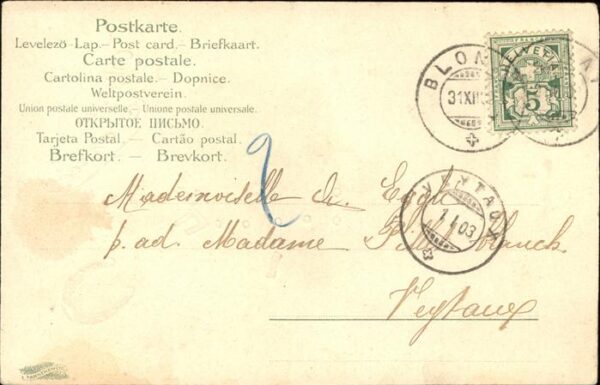 Postkarte.
Levelező-Lap.– Post card.– Briefkaart.
Carte postale.
Cartolina postale.– Dopnice.
Weltpostverein.
Union postale universelle.– Unione postale universale.
ОТКРЫТОЕ ПИСЬМО.
Tarjeta Postal.– Cartão postal.
Brefkort.– Brevkort.
HELVETIA
5
31 XII
2
VEYTAUX
1.1.03
Mademoiselle du
p. ad. Madame
Veytaux